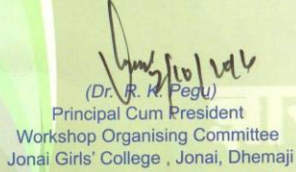 (Dr. R. K. Pegu)
Principal Cum President
Workshop Organising Committee
Jonai Girls' College , Jonai, Dhemaji